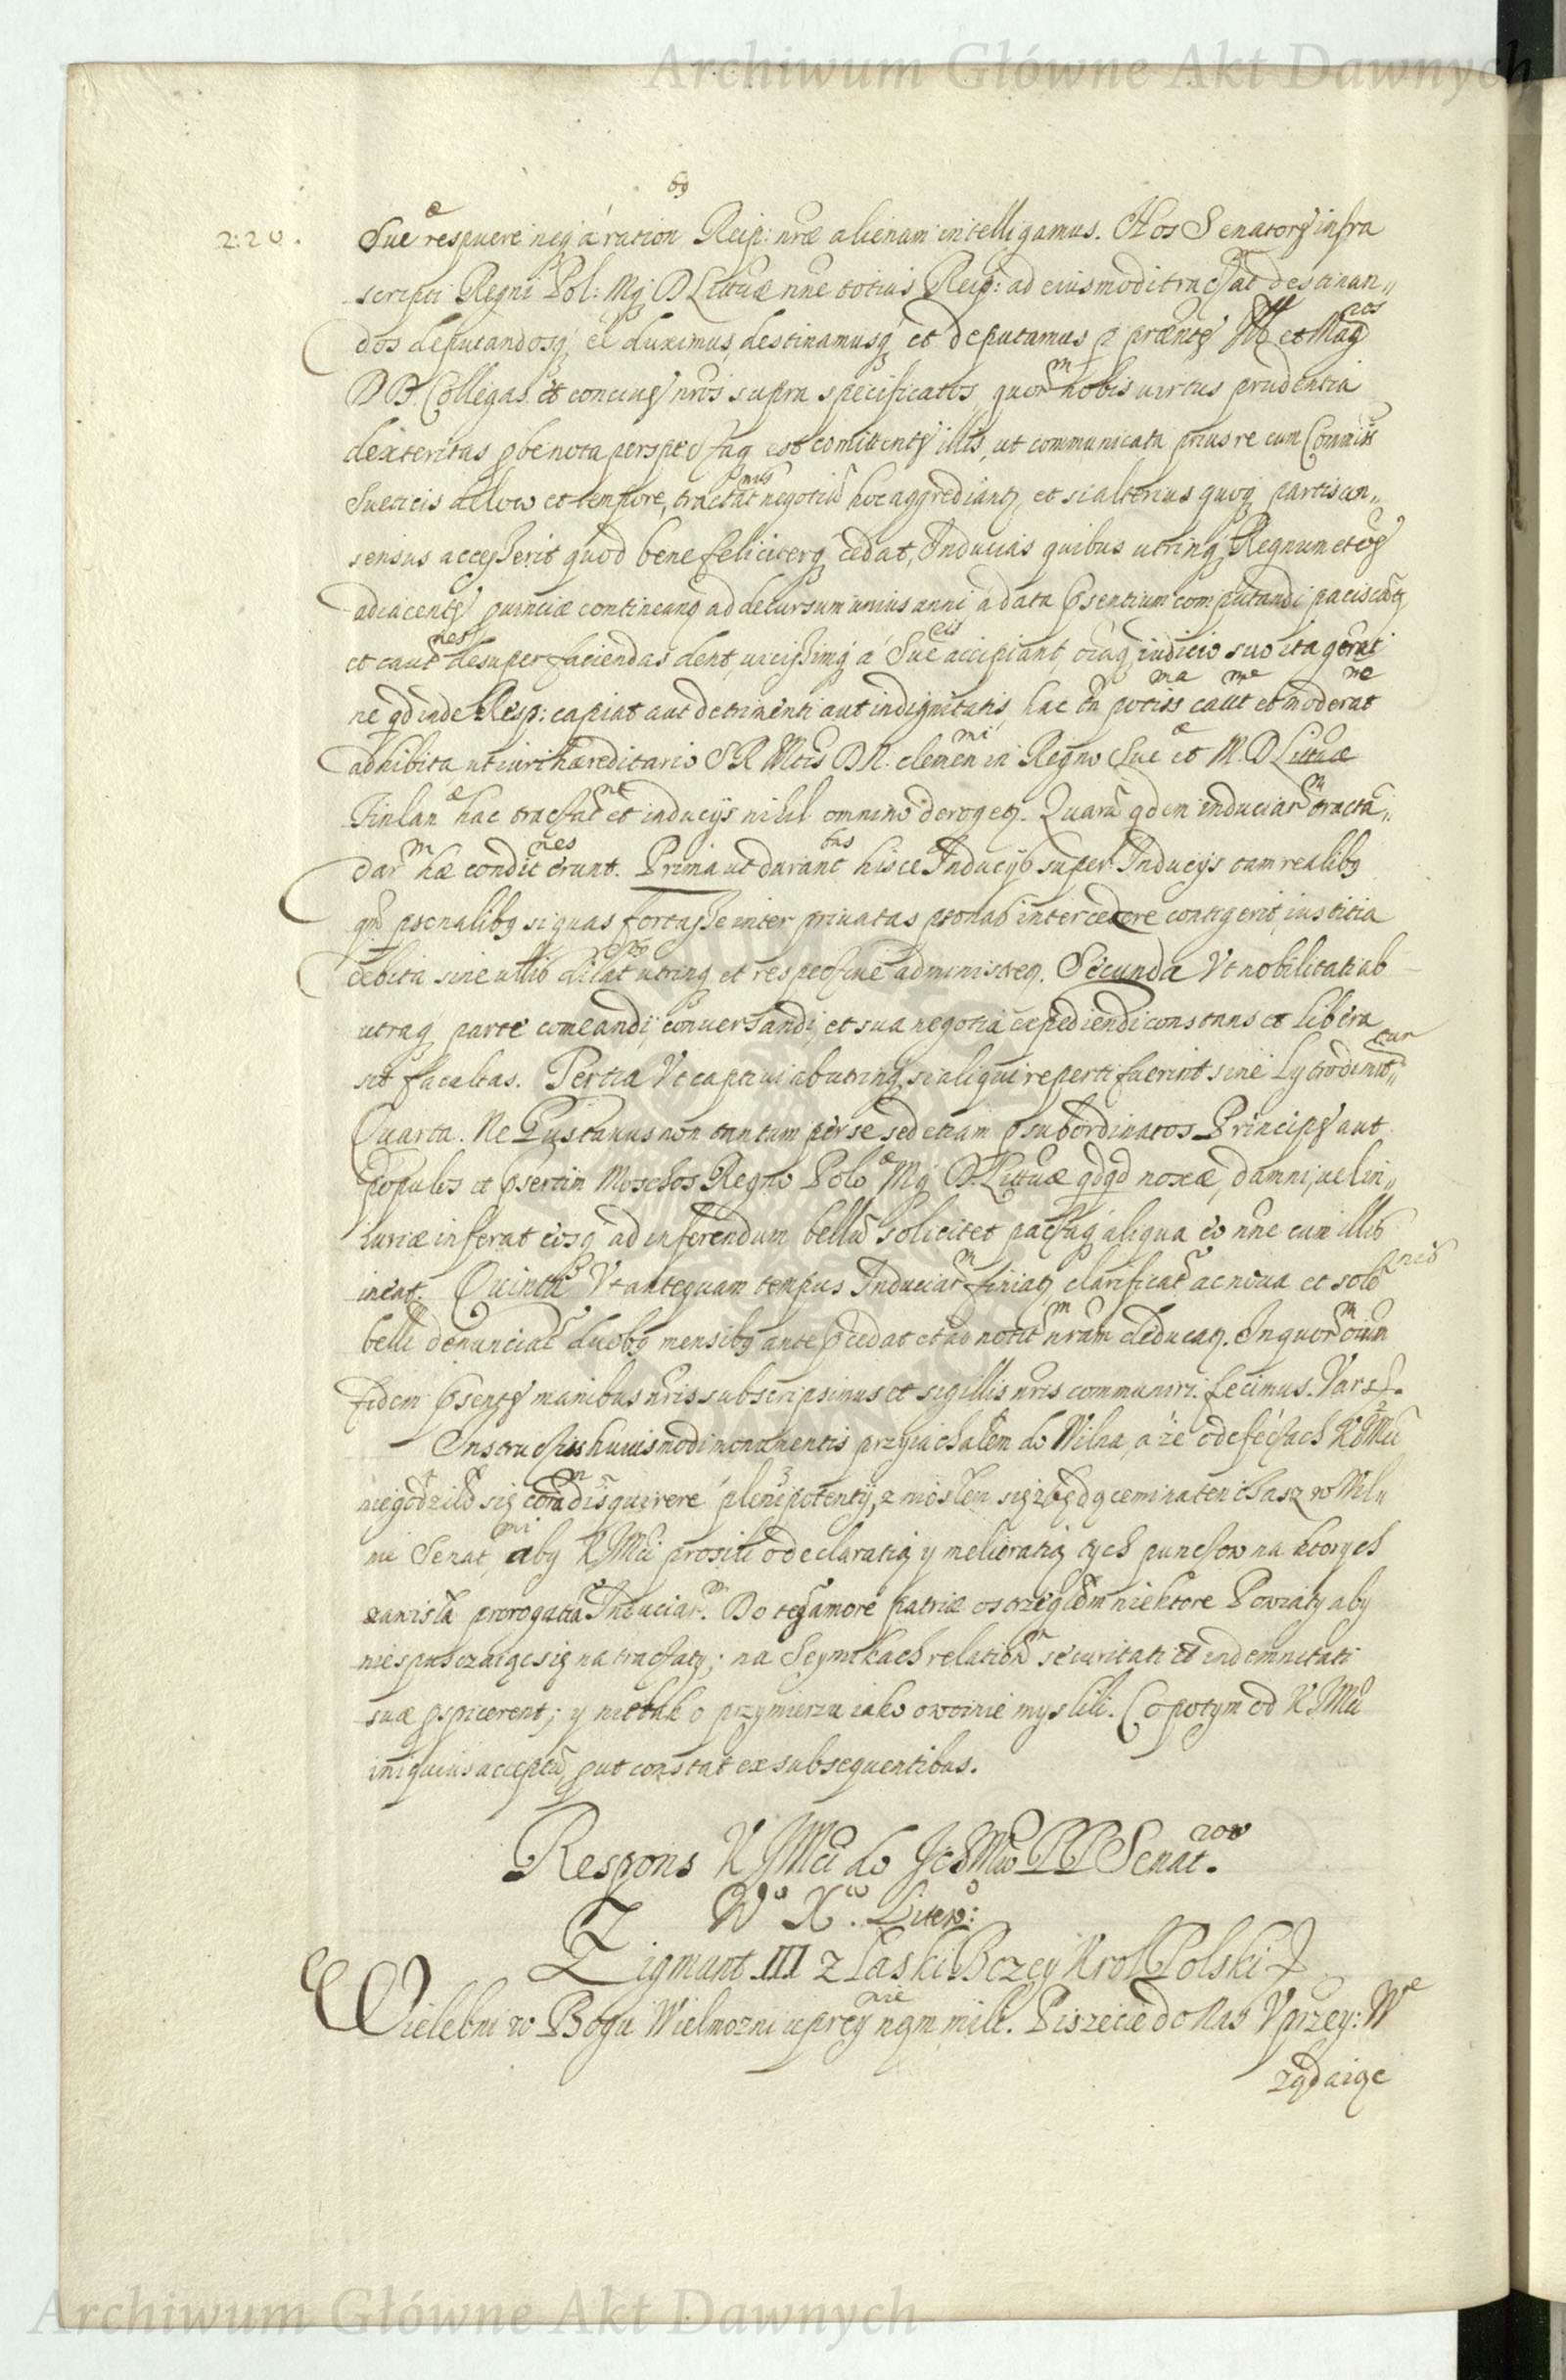 Archiwum Główne Akt Dawnych
220.
Sueᵆ respuere neq; á rationᵇ⁹ Reip: nr̃æ alienam intelligamus. Nos Senatorẽs infra
scripti Regni Pol: Mq; D Littuæ nñe totius Reip: ad eiusmodi tractat destinan„
dos deputandosq; eẽ duximus, destinamusq; et deputamus p præntẽs Ill et Magᶜᵒˢ
D D. Collegas et conciuẽs nr̃os supra specificatos, quorᵐ nobis uirtus prudentia
dexteritas pbe nota perspectaq; est comittentẽs illis, ut communicata prius re cum Commiss
Sueticis de loco et tempore, tractatᵒⁿⁱˢ negotiũ hoc aggrediantᷣ, et si alterius quoq; partis con„
sensus accesserit quod bene feliciterq; cedat, Inducias quibus utrinq; Regnum et eis
adiacentẽs puinciæ contineantᷣ ad decursum unius anni a data psentium computandi paciscãtᷣ
et cautⁿᵉˢ desuper faciendas dent, uicissimq; á Sueᶜⁱˢ accipiant, oĩaq; iudicio suo ita gerãt
ne qd inde Resp: capiat aut detrimenti aut indignitatis, hac tñ potissᵐᵃ cautᵐᵉ et moderatⁿᵉ
adhibita ut iuri hæreditario S R Mtis D N. clemenᵐⁱ in Regno Sueᵆ et M. D Littuæ
Finlanᵆ hac tractatⁿᵉ et inducijs nihil omnino derogetᷣ. Quarũ qdem induciarᵐ tracta„
darᵐ hæ conditⁿᵉˢ erunt. Prima ut durantᵇᵘˢ hisce Inducijs super Inducijs tam realibꝰ
qm̃ psonalibꝰ si quas fortasse inter priuatas psonas intercedere contigerit, iustitia
debita sine ullis dilatᵒⁿⁱᵇ⁹ utrinq; et respectiuè administretᷣ. Secunda Vt nobilitati ab
utraq; parte comeandi, conuersandi, et sua negotia expediendi constans et libera
sit facultas. Tertia Vt captiui ab utrinq; si aliqui reperti fuerint sine Lytro dimittᵗᵘʳ
Quarta. Ne Gustauus non tantum per se sed etiam p subordinatos Principẽs aut
populos et psertim Moschos Regno Poloᵆ Mq; D. Littuæ qdqd noxæ, damni, uel in„
iuriæ inferat eosq; ad inferendum bellũ solicitet pactaq; aliqua eo nñe cum illis
ineat. Quinta Vt antequam tempus Induciarᵐ finiatᷣ clarificatᵒ ac noua et soloⁿⁱˢ
belli denunciatᵒ duobꝰ mensibꝰ ante pcedat et ad notitᵐ nr̃am deducatᷣ. In quorᵐ oĩum
fidem psentẽs manibus nr̃is subscripsimus et sigillis nr̃is communiri fecimus. Vars.
Instructus huiusmodi monumentis przyiachałem do Wilna, a że o defectach K JMci
niegodziło się coram disquirere plenipotentij, zniosłem się z będącemi na ten czas w Wil„
nie Senatᵐⁱ aby K JMci prosili o declaratią y melioratią tych punctow na ktorych
zawisła prorogatia Induciarᵐ. Do teg amore patriæ ostrzegłem niektore Powiaty aby
nie spuszczaiąc się na tractaty; na Seymikach relationẽ securitati et indemnitati
suæ pspicerent; y nietak o przymierzu iako o woinie myslili. Co potym od K JMci
iniquius acceptũ, put constat ex subsequentibus.
Respons K JMci do Ich Mciow PP Senatᵒʳᵒʷ
Wᵒ Xᵒ. Litewᵒ:
Zigmunt III z Łaski Bożey Krol Polski
Wielebni w Bogu Wielmozni uprzeyⁿⁱᵉ nąm mili. Piszecie do Nas Vprzey: Wᵉ
żądaiąc
Archiwum Główne Akt Dawnych